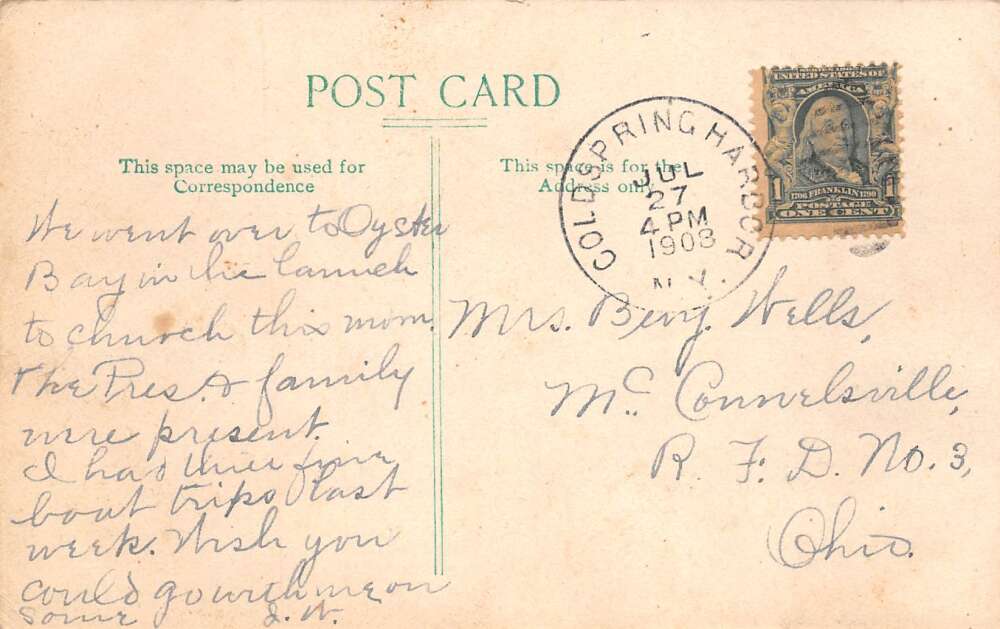 POST CARD
This space may be used for
Correspondence
We went over to Oyster
Bay in the launch
to church this morn.
the Pres. & family
were present.
I had three fine
boat trips last
week. Wish you
could go with me on
some J. W.
This space is for the
Address only
COLD SPRING HARBOR
JUL
27
4 PM
1908
N.Y.
UNITED STATES OF
AMERICA
1
1706 FRANKLIN 1790
POSTAGE
ONE CENT
Mrs. Benj. Wells,
Mc Connelsville,
R. F. D. No. 3,
Ohio.